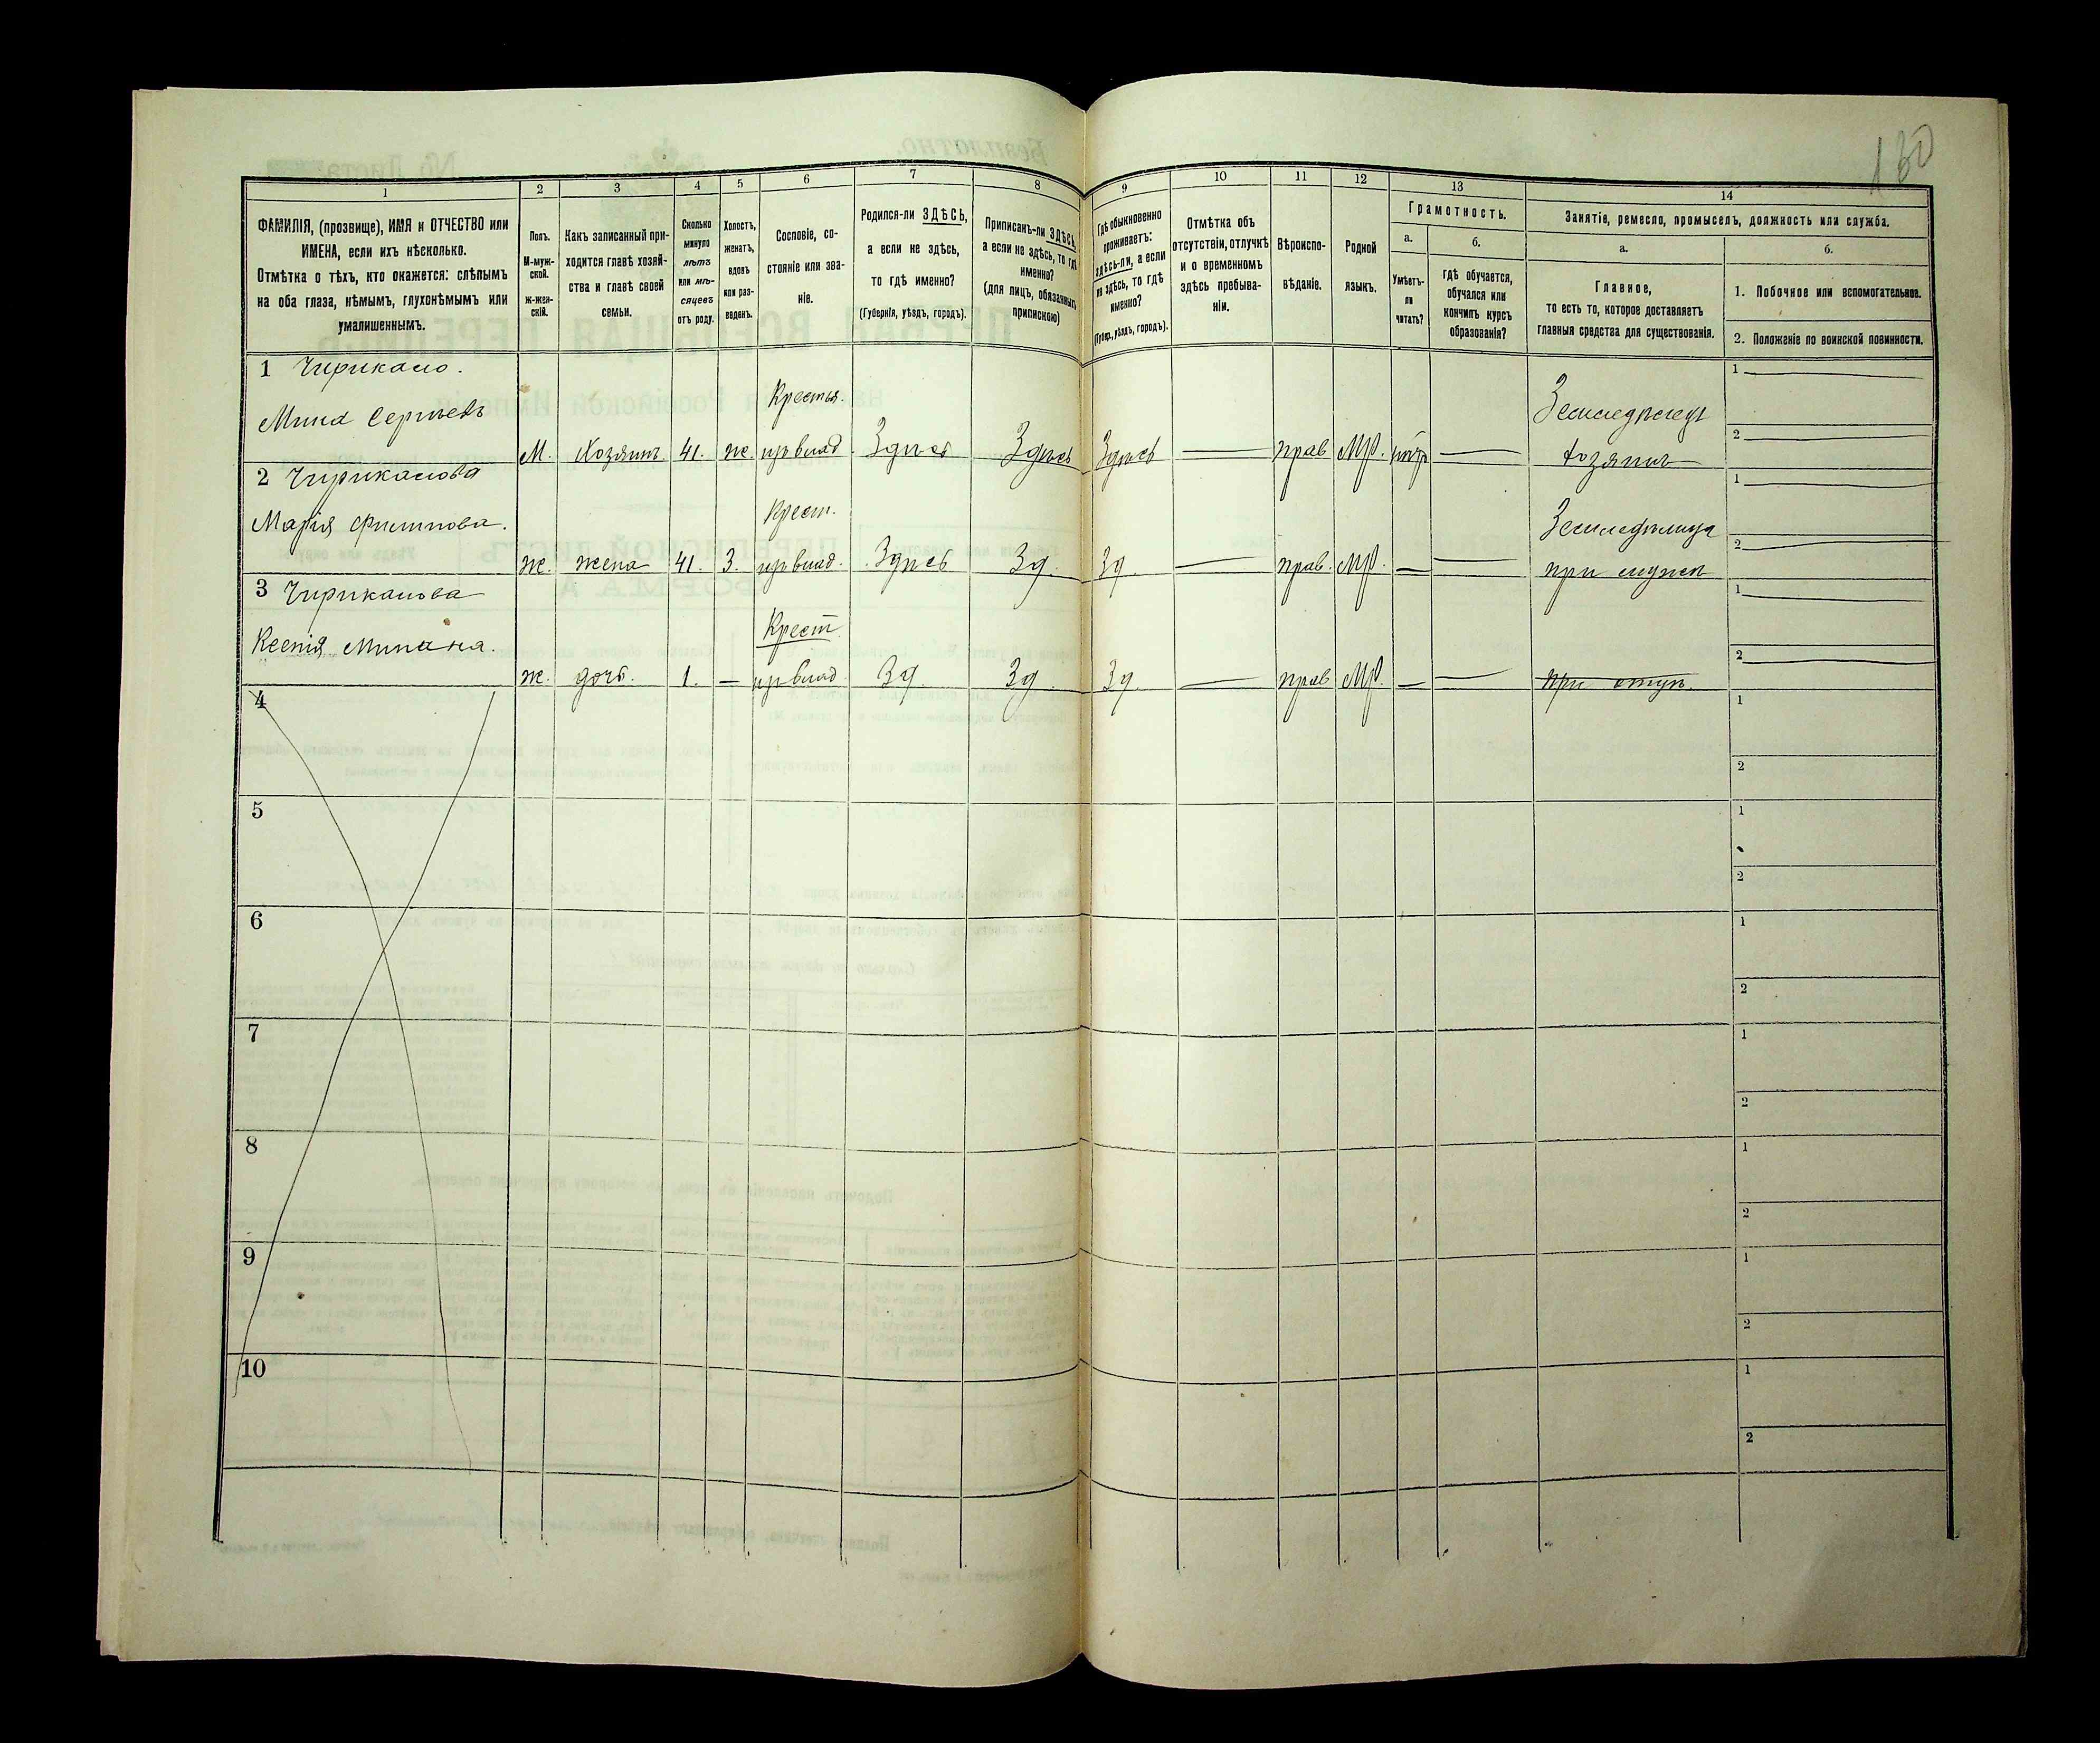 130
1 2 3 4 5 6 7 8 9 10 11 12 13 14
ФАМИЛІЯ, (прозвище), ИМЯ и ОТЧЕСТВО или
ИМЕНА, если ихъ нѣсколько.
Отмѣтка о тѣхъ, кто окажется: слѣпымъ
на оба глаза, нѣмымъ, глухонѣмымъ или
умалишеннымъ.
Полъ.
М-муж-
ской.
ж-жен-
скій.
Какъ записанный при-
ходится главѣ хозяй-
ства и главѣ своей
семьи.
Сколько
минуло
лѣтъ
или мѣ-
сяцевъ
отъ роду.
Холостъ,
женатъ,
вдовъ
или раз-
веденъ.
Сословіе, со-
стояніе или зва-
ніе.
Родился-ли ЗДѢСЬ,
а если не здѣсь,
то гдѣ именно?
(Губернія, уѣздъ, городъ).
Приписанъ-ли ЗДѢСЬ,
а если не здѣсь, то гдѣ
именно?
(для лицъ, обязанныхъ
припискою)
Гдѣ обыкновенно
проживаетъ:
здѣсь-ли, а если
не здѣсь, то гдѣ
именно?
(Губер., уѣздъ, городъ).
Отмѣтка объ
отсутствіи, отлучкѣ
и о временномъ
здѣсь пребыва-
ніи.
Вѣроиспо-
вѣданіе.
Родной
языкъ.
Грамотность.
а.
Умѣетъ-
ли
читать?
б.
гдѣ обучается,
обучался или
кончилъ курсъ
образованія?
Занятіе, ремесло, промыселъ, должность или служба.
а.
Главное,
то есть то, которое доставляетъ
главныя средства для существованія.
б.
1. Побочное или вспомогательное.
2. Положеніе по воинской повинности.
1
Мина Сергѣевъ
М. Хозяинъ 41. ж. Здѣсь Здѣсь Здѣсь прав МР.
Хозяинъ
1
2
2 Чирикалова
Марія Филипова.
Крест.
ж. жена 41. З. Здѣсь Зд. Зд. прав. МР.
Земледѣлица
при мужѣ
1
2
3 Чирикалова
Ксенія Минаня.
Крест.
ж. дочь. 1. Зд. Зд. Зд. прав МР.
при отцѣ.
1
2
4 1
2
5 1
2
6 1
2
7 1
2
8 1
2
9 1
2
10 1
2